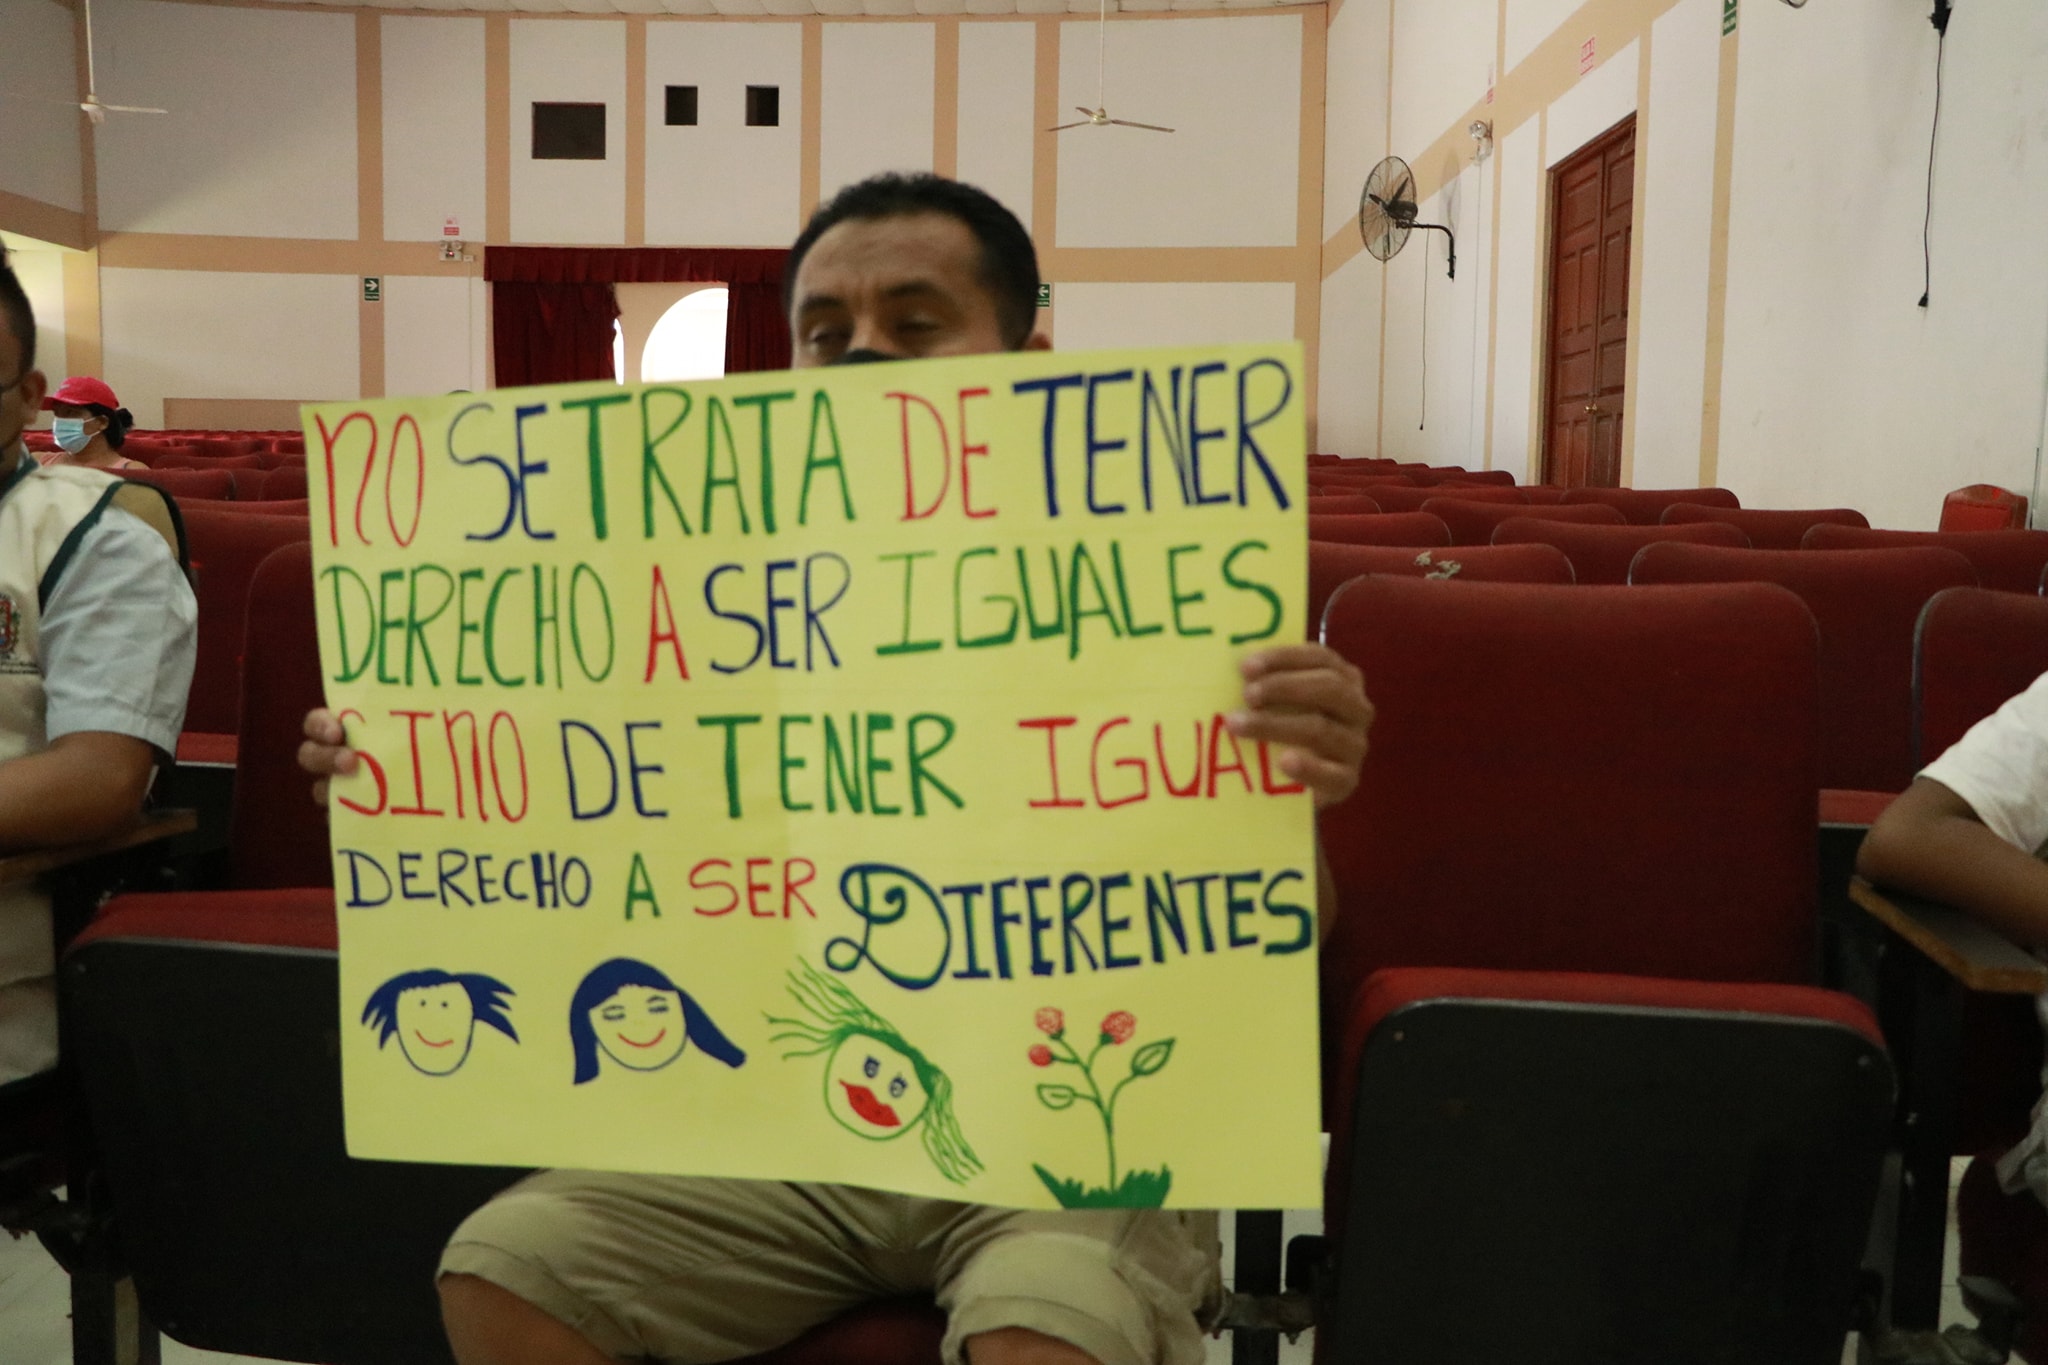 NO SE TRATA DE TENER
DERECHO A SER IGUALES
SINO DE TENER IGUAL
DERECHO A SER DIFERENTES